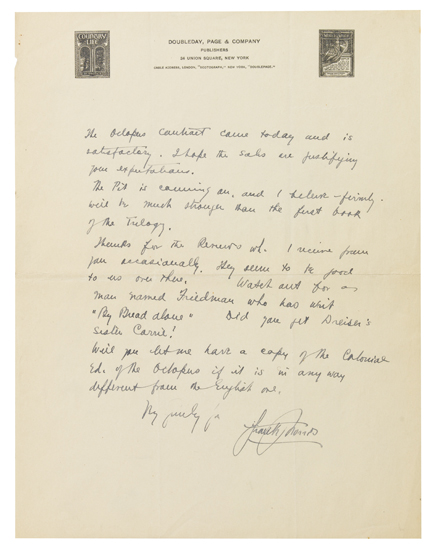 COUNTRY LIFE
DOUBLEDAY, PAGE & COMPANY
PUBLISHERS
34 UNION SQUARE, NEW YORK
The Octopus contract came today and is
satisfactory. I hope the sales are justifying
your expectations.
The Pit is coming on, and I believe – firmly
will be much stronger than the first book
of the Trilogy.
Thanks for the Reviews wh. I receive from
you occasionally. They seem to be good
to us over there. Watch out for a
man named Friedman who has writ
"By Bread alone" Did you get Dreiser's
Sister Carrie!
Will you let me have a copy of the Colonial
Ed. of the Octopus if it is in any way
different from the English one.
Frank Norris